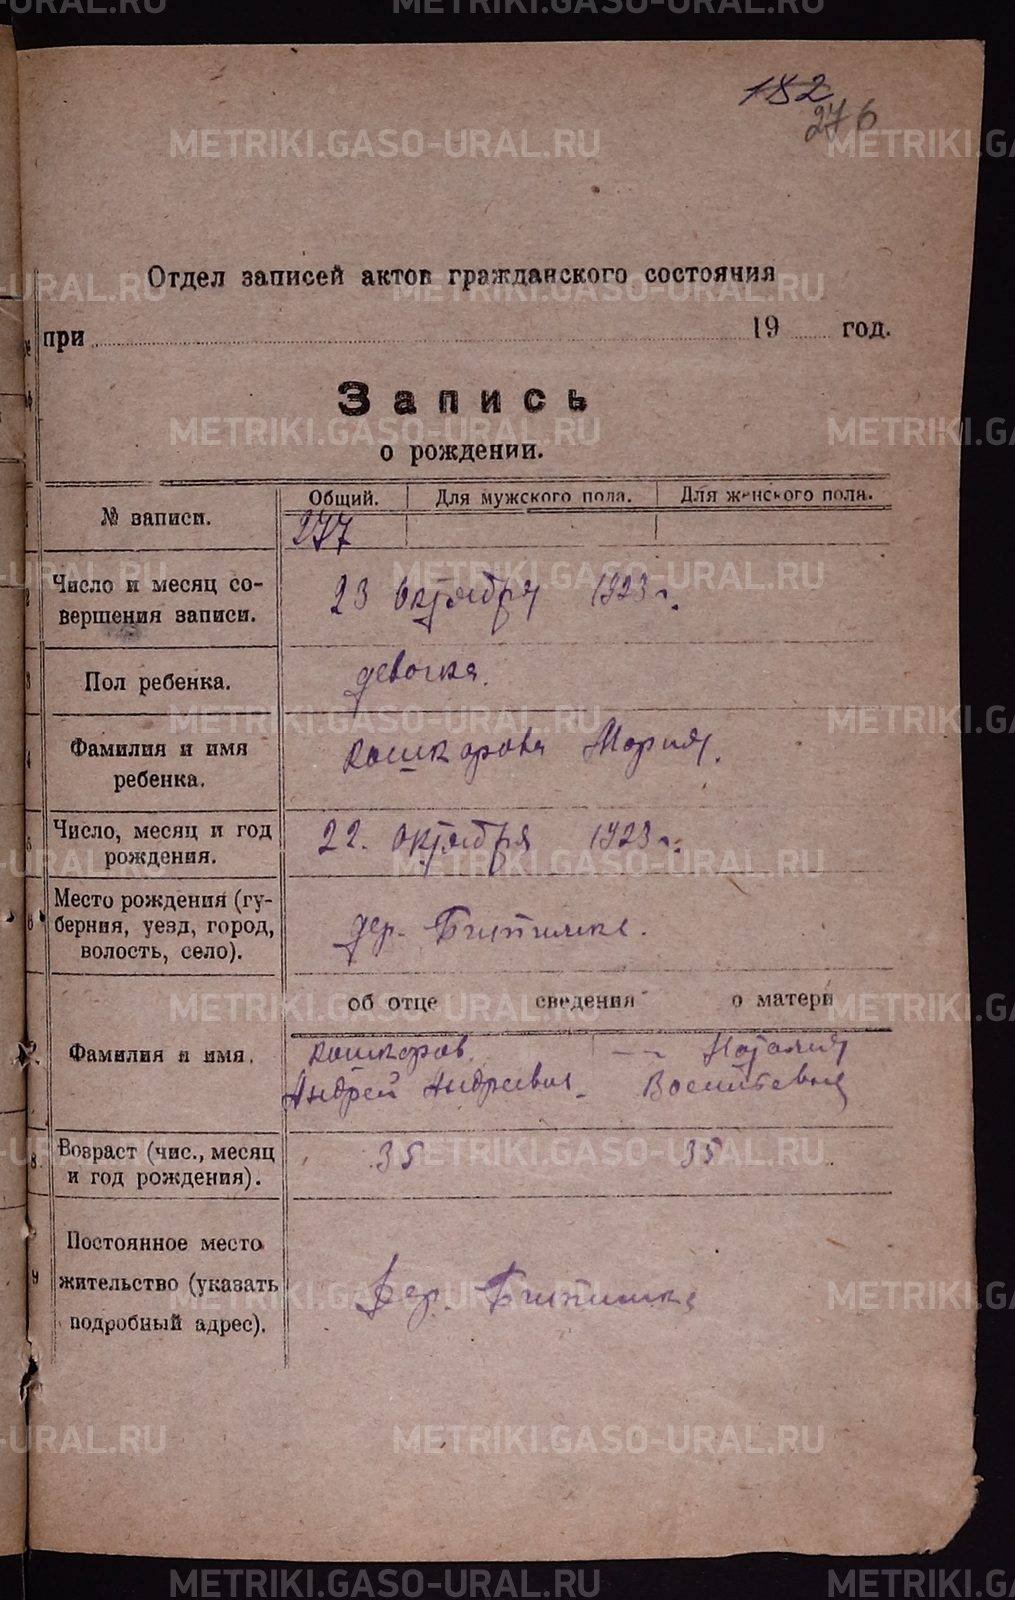 182
276
Отдел записей актов гражданского состояния
при 19 год.
Запись
о рождении.
№ записи.
Общий. Для мужского пола. Для женского пола.
277
Число и месяц со-
вершения записи.
23 октября 1923 г.
Пол ребенка.
девочка.
Фамилия и имя
ребенка.
Кошкарова Мария.
Число, месяц и год
рождения.
22. октября 1923 г.
Место рождения (гу-
берния, уезд, город,
волость, село).
дер.
об отце сведения о матери
Фамилия и имя.
Кошкаров — Наталия
Андрей Андреевич.
Возраст (чис., месяц
и год рождения).
35 35
Постоянное место
жительство (указать
подробный адрес).
дер.
METRIKI.GASO-URAL.RU